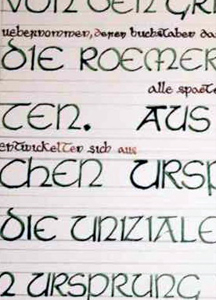 VON DEN GRI
uebernommen, deren buchstaben da
DIE ROEMER
alle spaete
TEN. AUS
entwickelten sich aus
CHEN URSP
DIE UNZIALE
N URSPRUNG